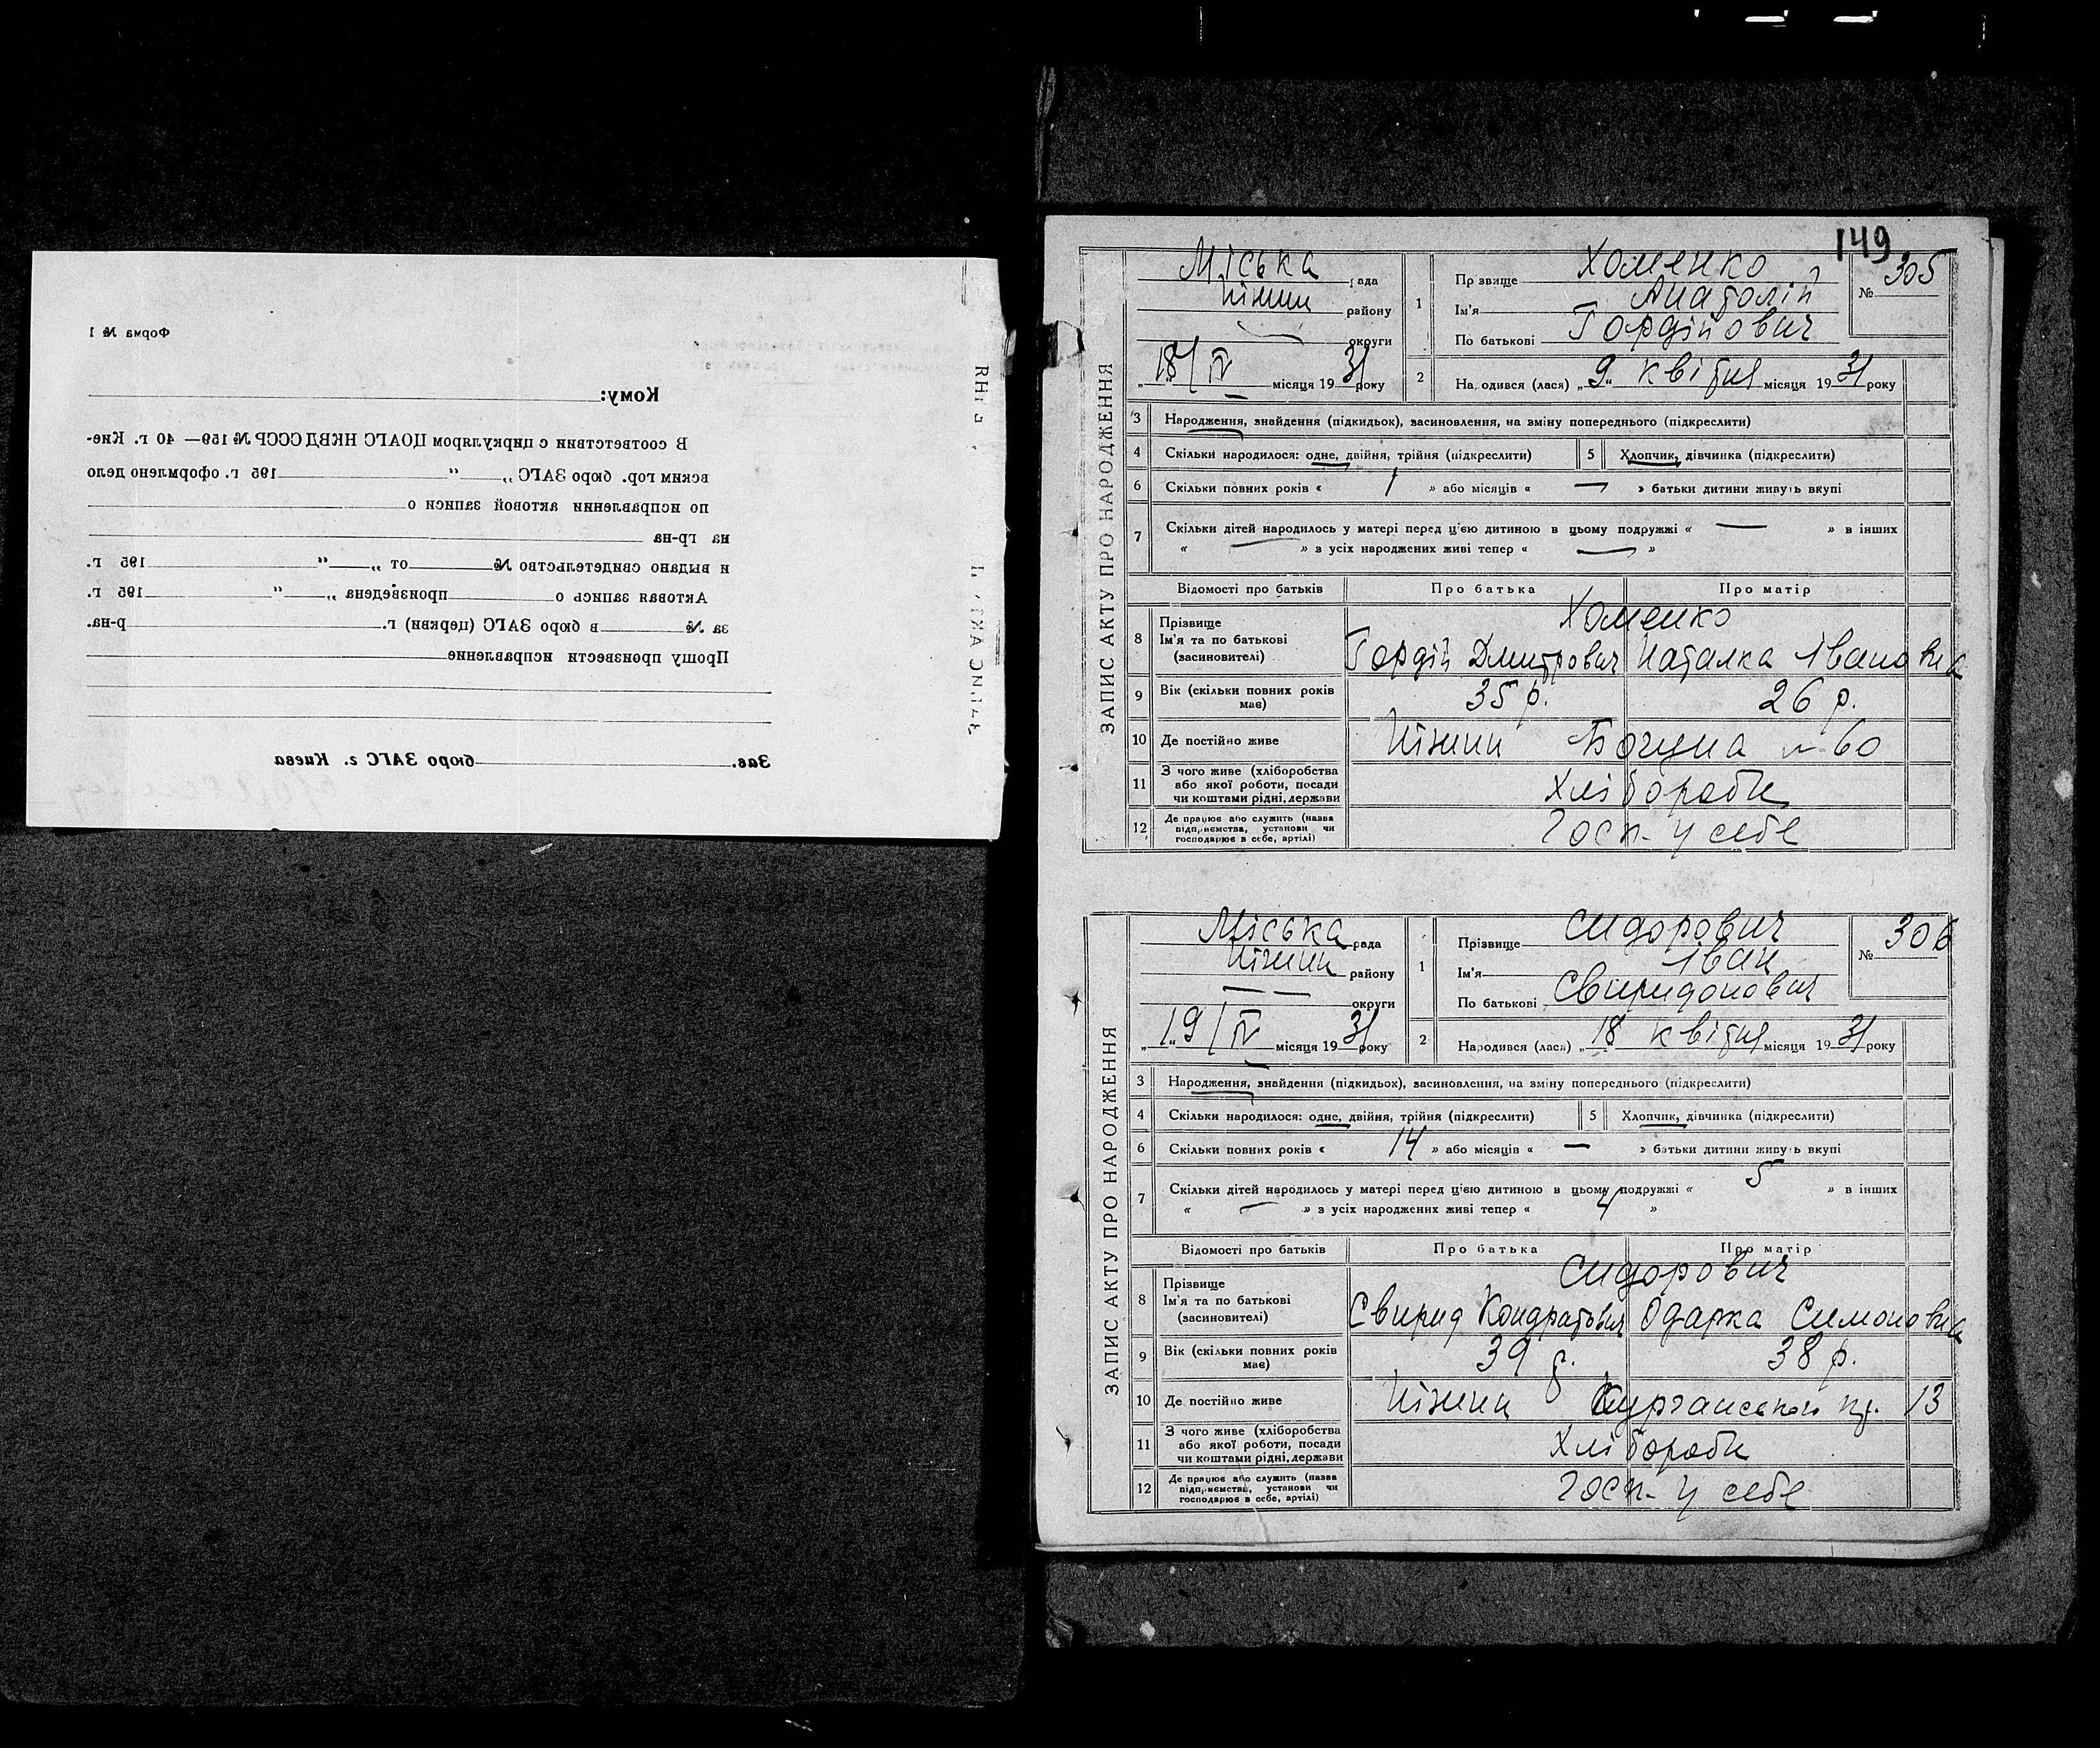 Форма № 1
Кому:
В соответствии с циркуляром ЦОАГС НКВД СССР № 159— 40 г. Кие-
вским гор. бюро ЗАГС „ “ 195 г. оформлено дело
по исправлении актовой записи о
на гр-на
и выдано свидетельство № от „ “ 195 г.
Актовая запись о произведена „ “ 195 г.
за № в бюро ЗАГС (церкви) г. р-на.
Прошу произвести исправление
Зав. бюро ЗАГС г. Киева
149
ЗАПИС АКТУ ПРО НАРОДЖЕННЯ
Міська рада
Ніжин району
округи
18/IV місяця 1931 року
1 Прізвище Хоменко № 305
Ім'я Анатолій
По батькові Гордійович
2 Народився (лася) „9“ квітня місяця 1931 року
3 Народження, знайдення (підкидьок), засиновлення, на зміну попереднього (підкреслити)
4 Скільки народилося: одне, двійня, трійня (підкреслити) 5 Хлопчик, дівчинка (підкреслити)
6 Скільки повних років « 1 » або місяців « — » батьки дитини живуть вкупі
7 Скільки дітей народилось у матері перед цією дитиною в цьому подружжі « — » в інших
« — » з усіх народжених живі тепер « — »
Відомості про батьків Про батька Про матір
8 Прізвище Хоменко
Ім'я та по батькові Гордій Дмитрович Наталка Івановна
(засиновителі)
9 Вік (скільки повних років має) 35 р. 26 р.
10 Де постійно живе Ніжин Богуна № 60
11 З чого живе (хліборобства
або якої роботи, посади Хлібороби
чи коштами рідні, держави
12 Де працює або служить (назва
підприємства, установи чи Госп. у себе
господарює в себе, артілі)
ЗАПИС АКТУ ПРО НАРОДЖЕННЯ
Міська рада
Ніжин району
— — округи
19/IV місяця 1931 року
1 Прізвище Сидорович № 306
Ім'я Іван
По батькові Свиридонович
2 Народився (лася) „18“ квітня місяця 1931 року
3 Народження, знайдення (підкидьок), засиновлення, на зміну попереднього (підкреслити)
4 Скільки народилося: одне, двійня, трійня (підкреслити) 5 Хлопчик, дівчинка (підкреслити)
6 Скільки повних років « 14 » або місяців « — » батьки дитини живуть вкупі
7 Скільки дітей народилось у матері перед цією дитиною в цьому подружжі « 5 » в інших
« — » з усіх народжених живі тепер « 4 »
Відомості про батьків Про батька Про матір
8 Прізвище Сидорович
Ім'я та по батькові Свирид Кондратович Одарка Симоновна
(засиновителі)
9 Вік (скільки повних років має) 39 р. 38 р.
10 Де постійно живе Ніжин 13
11 З чого живе (хліборобства
або якої роботи, посади Хлібороби
чи коштами рідні, держави
12 Де працює або служить (назва
підприємства, установи чи Госп. у себе
господарює в себе, артілі)